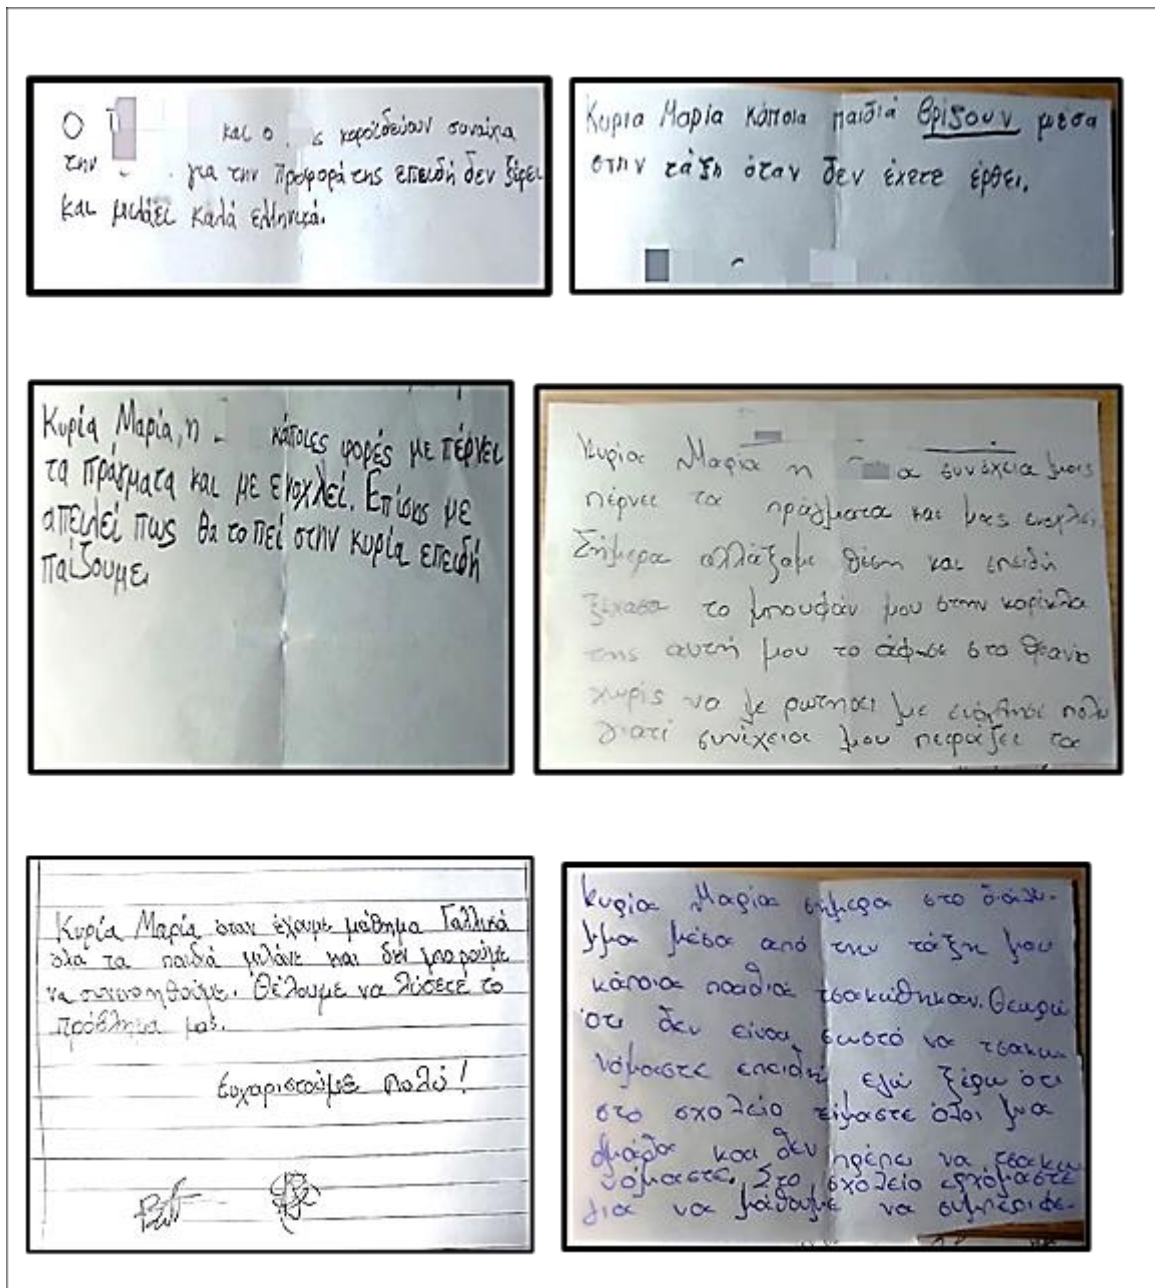 Ο και ο ς κοροϊδεύουν συνέχεια
την για την προφορά της επειδή δεν ξέρει
και μιλάει καλά ελληνικά.
Κυρία Μαρία κάποια παιδιά βρίζουν μέσα
στην τάξη όταν δεν έχετε έρθει.
Κυρία Μαρία, η κάποιες φορές με πέρνει
τα πράγματα και με ενοχλεί. Επίσης με
απειλεί πως θα το πεί στην κυρία επειδή
παίζουμε
Κυρία Μαρία η α συνέχεια μας
πέρνει τα πράγματα και μας ενοχλεί.
Σήμερα αλλάξαμε θέση και επειδή
ξέχασα το μπουφάν μου στην καρέκλα
της αυτή μου το άφησε στο θρανίο
χωρίς να με ρωτήσει με ενόχλησε πολύ
γιατί συνέχεια μου πειράζει τα
Κυρία Μαρία όταν έχουμε μάθημα Γαλλικά
όλα τα παιδιά μιλάνε και δεν μπορούμε
να συνενοηθούμε. Θέλουμε να λύσετε το
πρόβλημα μας.
Ευχαριστούμε πολύ!
Κυρία Μαρία σήμερα στο διάλυ-
μμα μέσα από την τάξη μου
κάποια παιδιά τσακώθηκαν. Θεωρώ
ότι δεν είναι σωστό να τσακω-
νόμαστε επειδή εγώ ξέρω ότι
στο σχολείο είμαστε όλοι μια
ομάδα και δεν πρέπει να τσακω
νόμαστε. Στο σχολείο ερχόμαστε
για να μάθουμε να συμπεριφε-